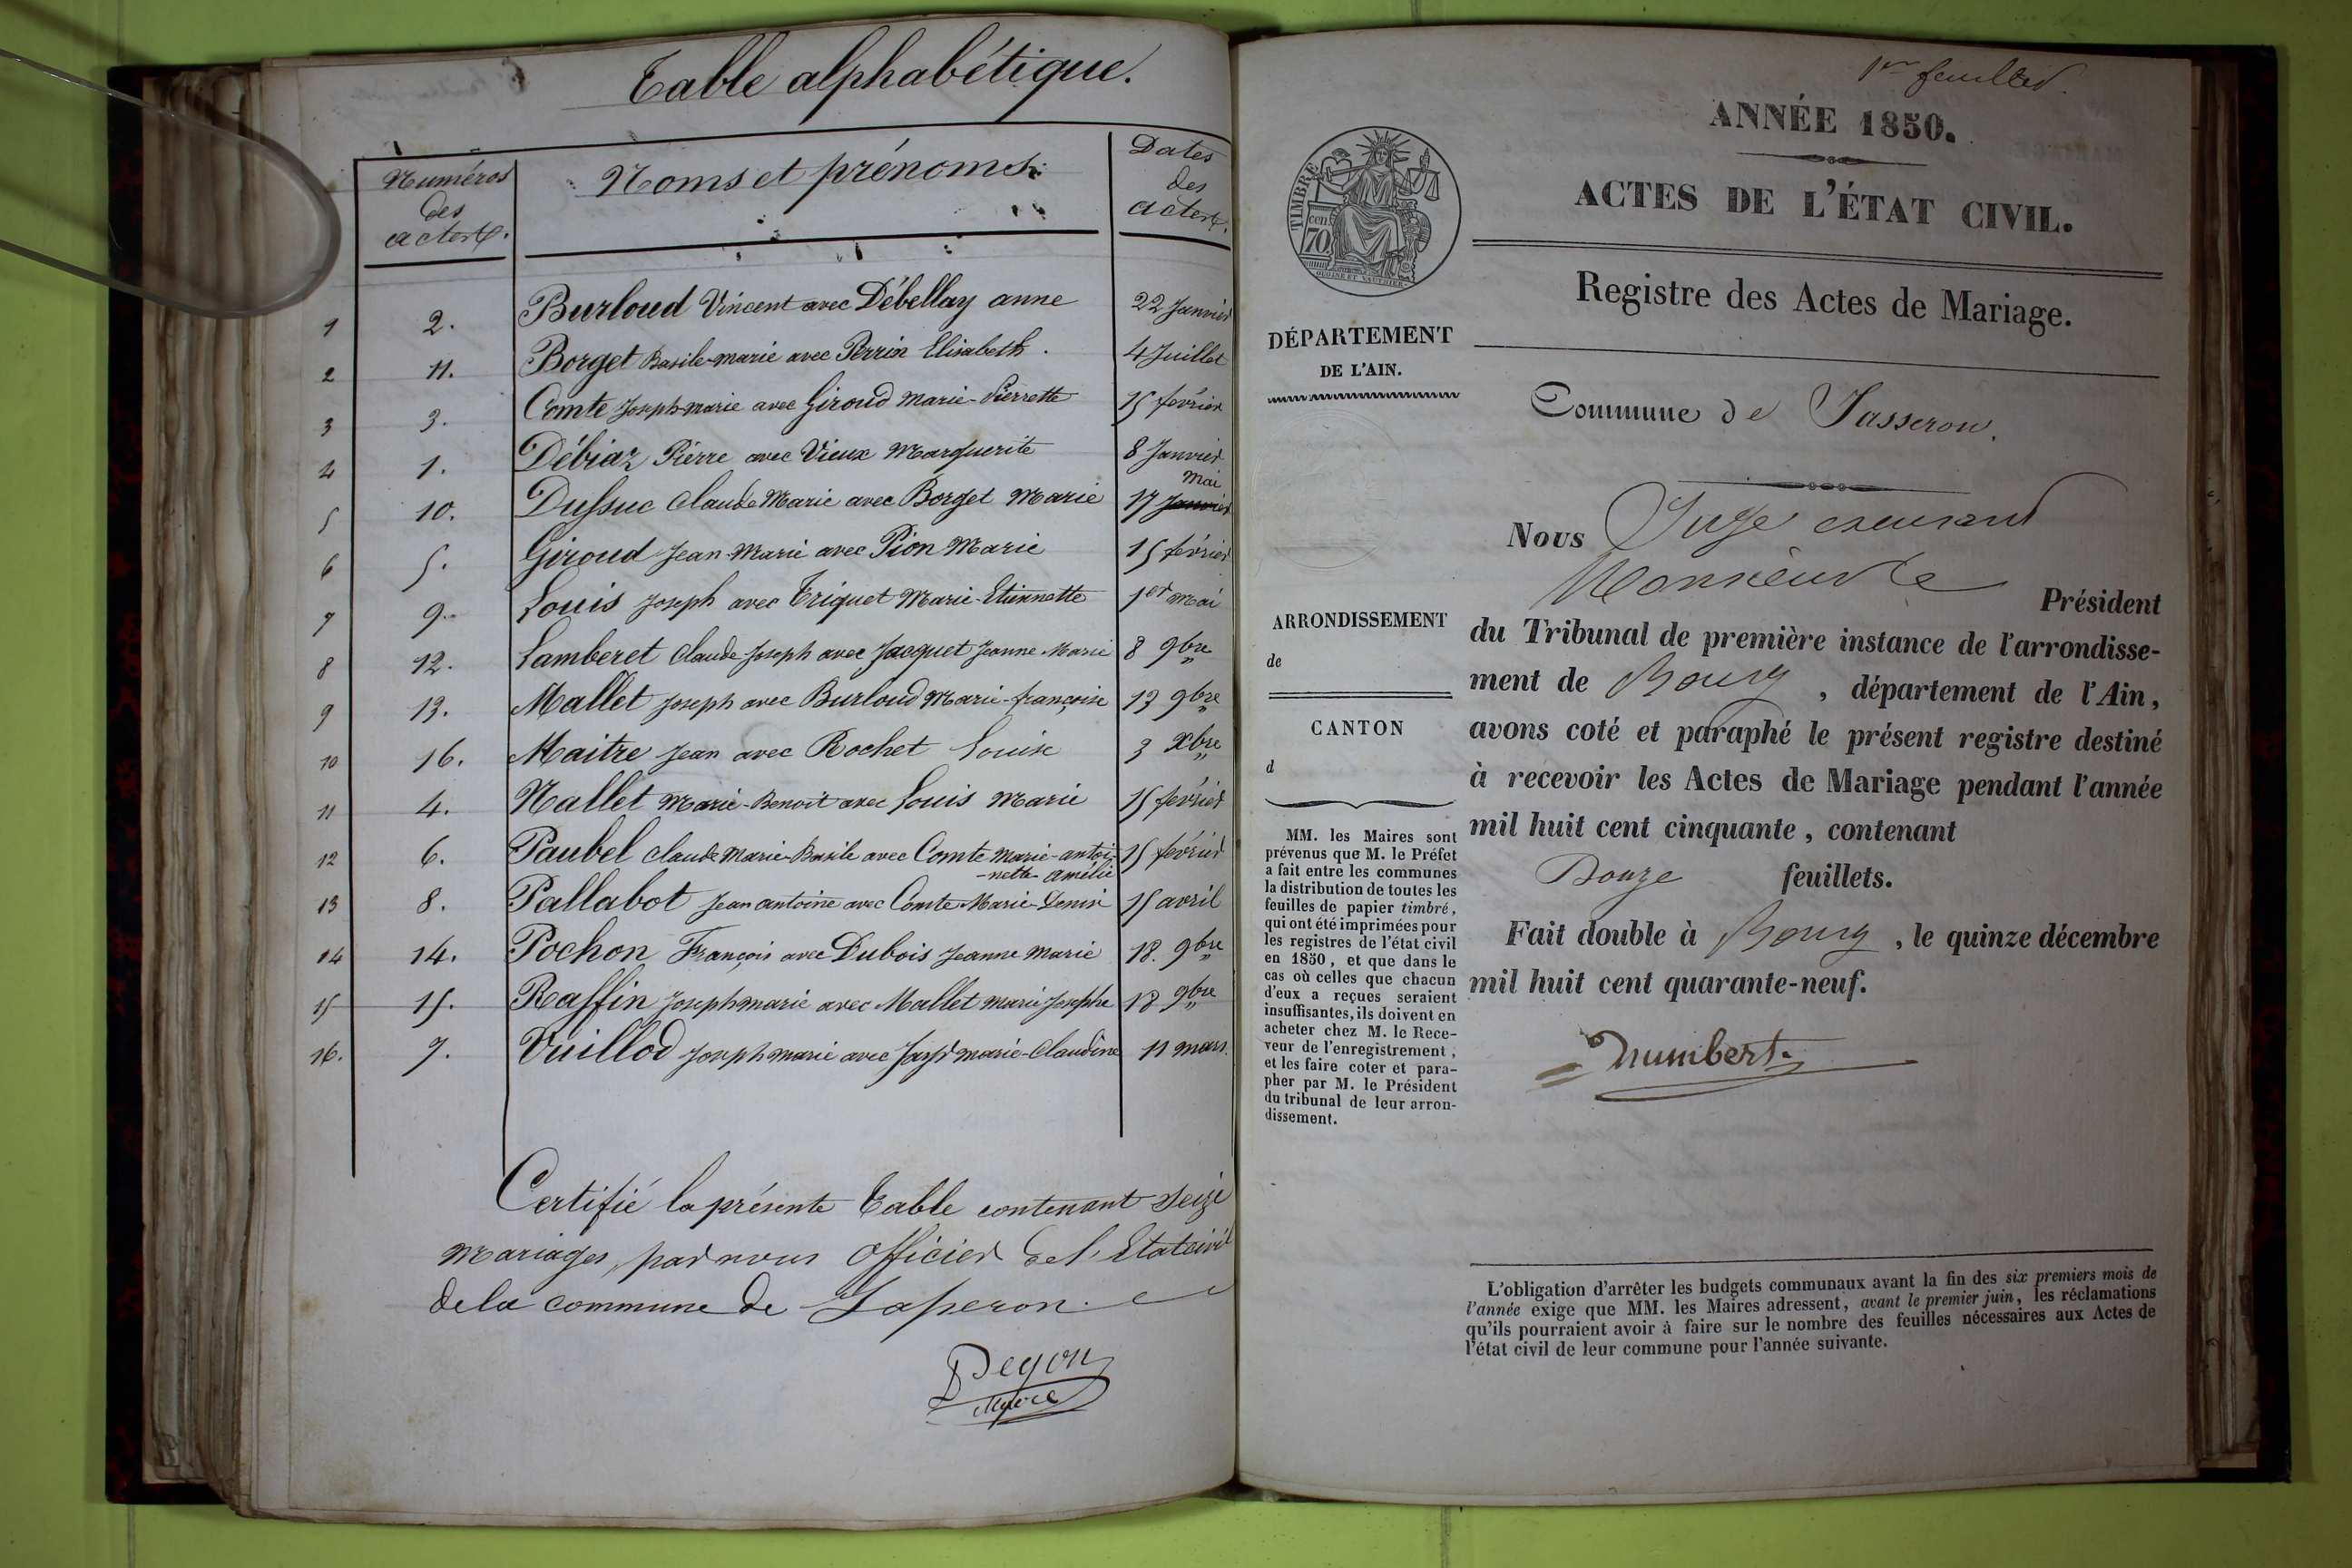 Table alphabétique.
Numéros
des
actes.
Noms et prénoms.
Dates
des
actes.
1 2. Burloud Vincent avec Débellay anne 22 Janvier
2 11. Borget Basile-marie avec Perrin Elisabeth. 4 Juillet
3 3. Comte Joseph-marie avec Giroud Marie-Pierrette 15 février
4 1. Débiaz Pierre avec Vieux Marguerite 8 Janvier
mai
5 10. Dussuc Claude Marie avec Borget Marie 17 Janvier
6 5. Giroud Jean-Marie avec Pion Marie 15 février
7 9. Louis Joseph avec Triquet Marie-Etiennette 1er mai
8 12. Lamberet Claude Joseph avec Jacquet Jeanne Marie 8 9bre
9 13. Mallet Joseph avec Burloud Marie-françoise 13 9bre
10 16. Maitre Jean avec Rochet Louise 3 Xbre
11 4. Nallet Marie-Benoit avec Louis Marie 15 février
12 6. Paubel Claude Marie-Basile avec Comte Marie-antoi- 15 février
-nette amélie
13 8. Pallabot Jean antoine avec Comte Marie-Denise 15 avril
14 14. Pochon François avec Dubois Jeanne Marie 18. 9bre
15 15. Raffin Joseph marie avec Mallet Marie Josephe 18 9bre
16. 7. Vuillod Joseph marie avec marie-Claudine 11 mars.
Certifié la présente Table contenant Seize
Mariages, par nous Officier de l'Etat civil
de la commune de Jasseron.
Degon
Maire
1er feuillet.
ANNÉE 1850.
ACTES DE L'ÉTAT CIVIL.
Registre des Actes de Mariage.
TIMBRE
70 cen
DÉPARTEMENT
DE L'AIN.
Commune de Jasseron.
Nous Juge excusant
Monsieur le Président
du Tribunal de première instance de l'arrondisse-
ment de Bourg, département de l'Ain,
avons coté et paraphé le présent registre destiné
à recevoir les Actes de Mariage pendant l'année
mil huit cent cinquante, contenant
Douze feuillets.
Fait double à Bourg, le quinze décembre
mil huit cent quarante-neuf.
ARRONDISSEMENT
de
CANTON
d
MM. les Maires sont
prévenus que M. le Préfet
a fait entre les communes
la distribution de toutes les
feuilles de papier timbré,
qui ont été imprimées pour
les registres de l'état civil
en 1850, et que dans le
cas où celles que chacun
d'eux a reçues seraient
insuffisantes, ils doivent en
acheter chez M. le Rece-
veur de l'enregistrement,
et les faire coter et para-
pher par M. le Président
du tribunal de leur arron-
dissement.
L'obligation d'arrêter les budgets communaux avant la fin des six premiers mois de
l'année exige que MM. les Maires adressent, avant le premier juin, les réclamations
qu'ils pourraient avoir à faire sur le nombre des feuilles nécessaires aux Actes de
l'état civil de leur commune pour l'année suivante.